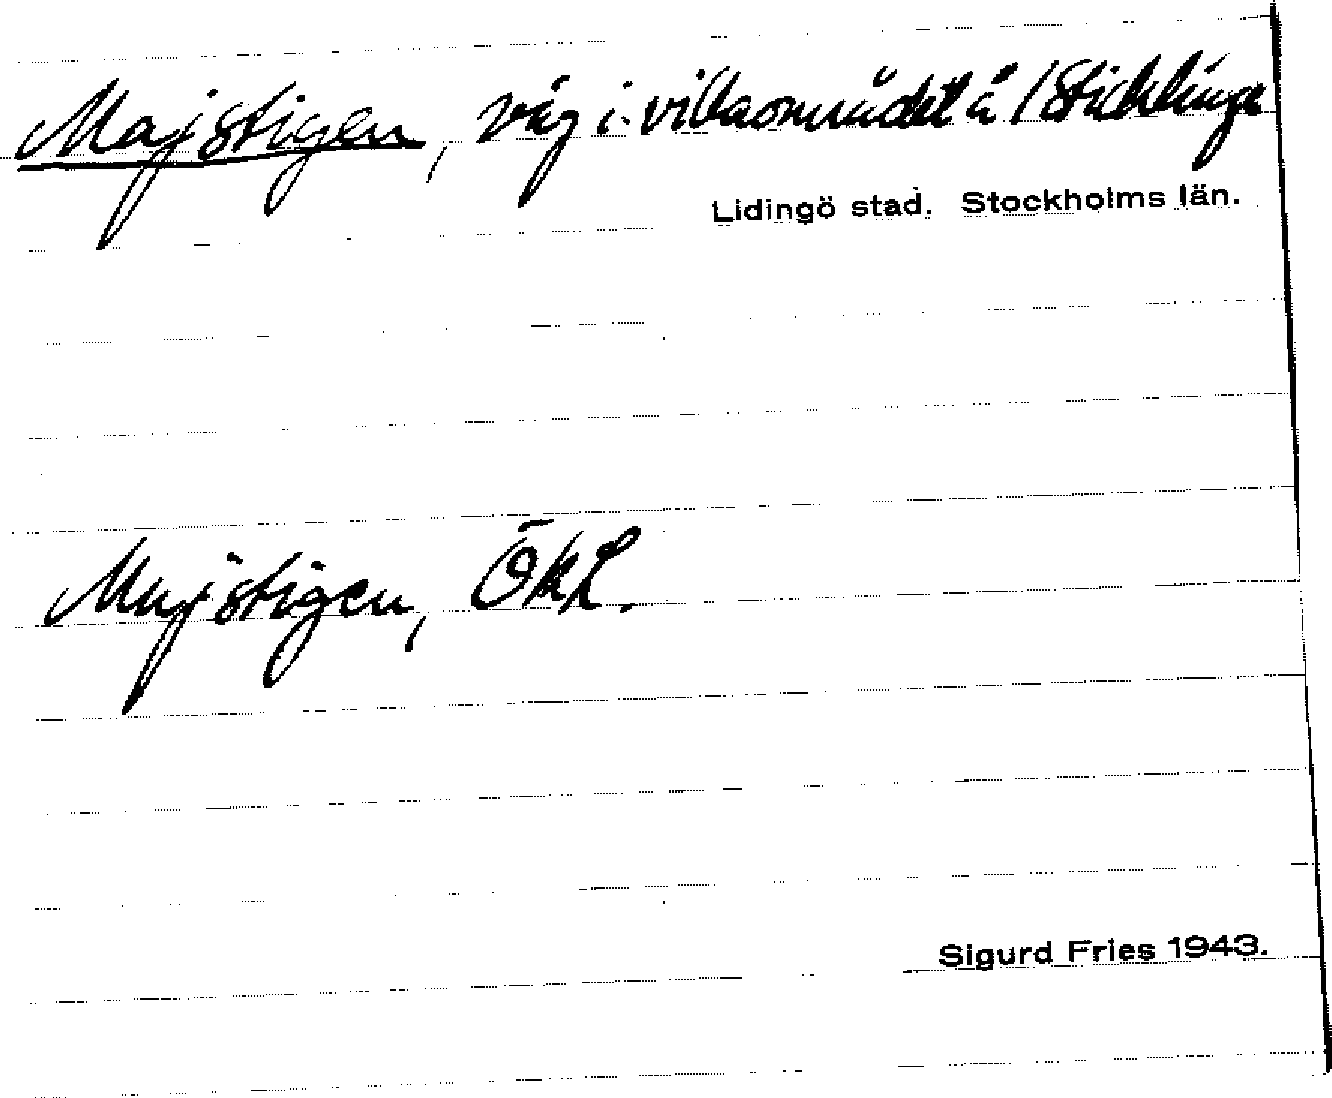 Majstigen, väg i villaområdet å / Sticklinge
Lidingö stad. Stockholms län.
Majstigen, ÖkL.
Sigurd Fries 1943.